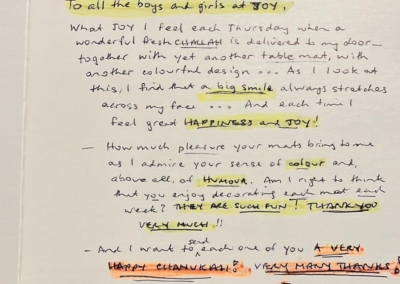 To all the boys and girls at JOY,
What JOY I feel each Thursday when a
wonderful fresh CHALLAH is delivered to my door—
together with yet another table mat, with
another colourful design ... As I look at
this, I find that a big smile always stretches
across my face ... And each time I
feel great HAPPINESS and JOY!
— How much pleasure your mats bring to me
as I admire your sense of colour and,
above all, of HUMOUR. Am I right to think
that you enjoy decorating each mat each
week? THEY ARE SUCH FUN! THANK YOU
VERY MUCH!!
— And I want to send each one of you A VERY
HAPPY CHANUKAH! VERY MANY THANKS!